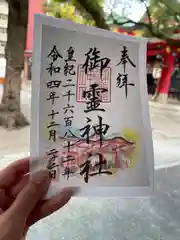 奉拝
御霊神社
皇紀二千六百八十二年
令和四年十二月二三日